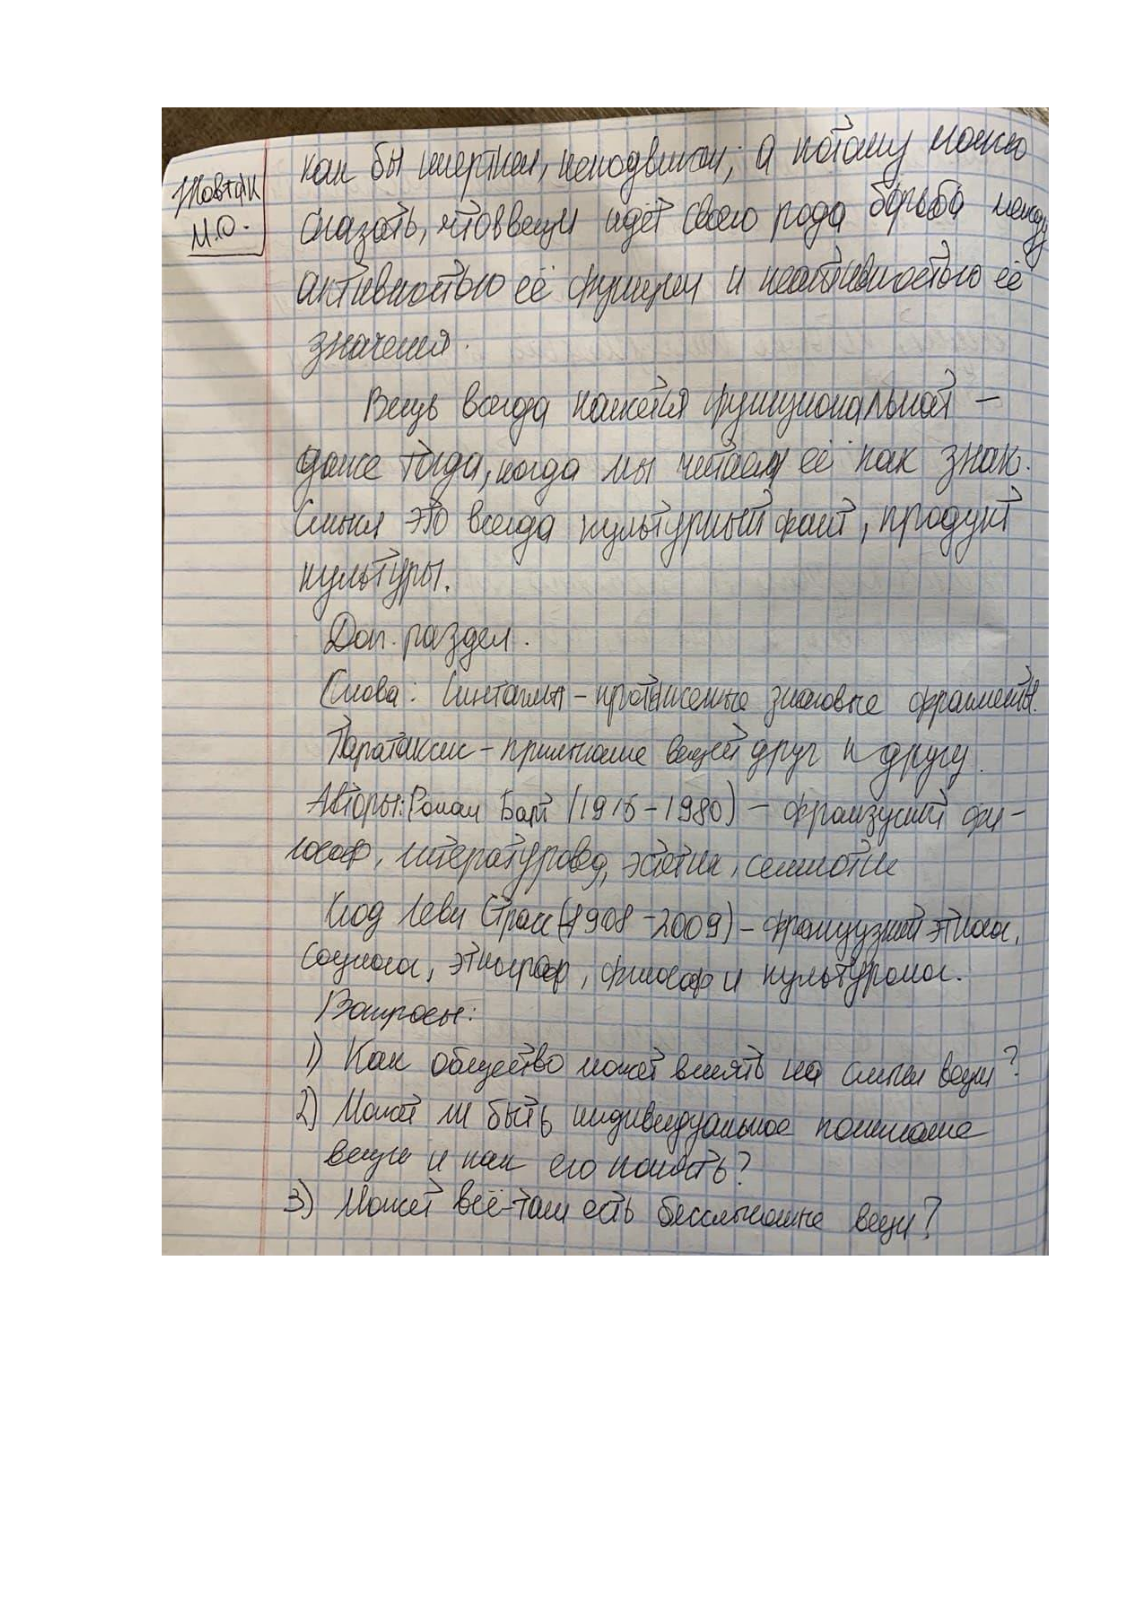 Жовтяк
М.О.
как бы инертен, неподвижен; а потому можно
сказать, что в вещи идёт своего рода борьба между
активностью её функции и неактивностью её
значения.
Вещь всегда кажется функциональной –
даже тогда, когда мы читаем её как знак.
Смысл это всегда культурный факт, продукт
культуры.
Доп. раздел.
Слова: Синтагмы – протяженные знаковые фрагменты.
Паратаксис – примыкание вещей друг к другу.
Авторы: Ролан Барт (1915–1980) – французский фи-
лософ, литературовед, эстетик, семиотик
Клод Леви Стросс (1908–2009) – французский этнолог,
социолог, этнограф, философ и культуролог.
Вопросы:
1) Как общество может влиять на смысл вещи?
2) Может ли быть индивидуальное понимание
вещи и как его понять?
3) Может всё-таки есть бессмысленные вещи?